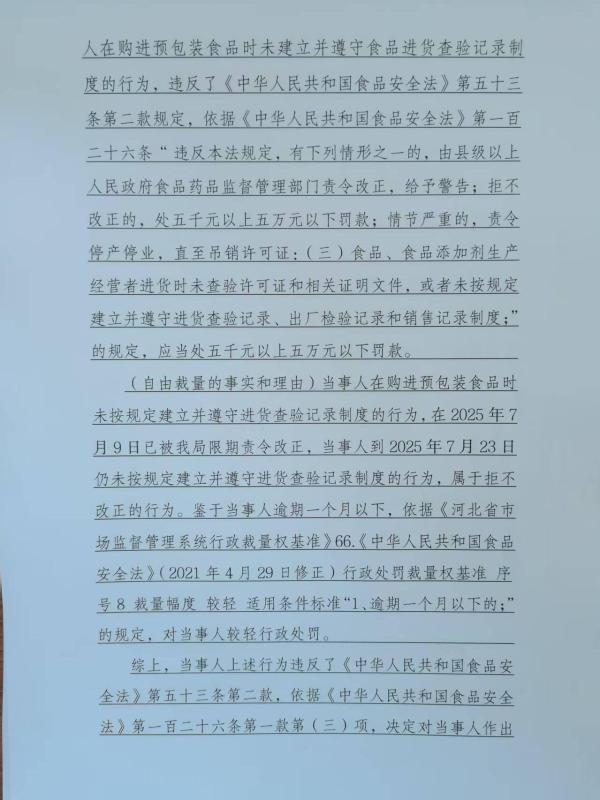 人在购进预包装食品时未建立并遵守食品进货查验记录制
度的行为，违反了《中华人民共和国食品安全法》第五十三
条第二款规定，依据《中华人民共和国食品安全法》第一百
二十六条“ 违反本法规定，有下列情形之一的，由县级以上
人民政府食品药品监督管理部门责令改正，给予警告；拒不
改正的，处五千元以上五万元以下罚款；情节严重的，责令
停产停业，直至吊销许可证：（三）食品、食品添加剂生产
经营者进货时未查验许可证和相关证明文件，或者未按规定
建立并遵守进货查验记录、出厂检验记录和销售记录制度；”
的规定，应当处五千元以上五万元以下罚款。
（自由裁量的事实和理由）当事人在购进预包装食品时
未按规定建立并遵守进货查验记录制度的行为，在 2025 年 7
月 9 日已被我局限期责令改正，当事人到 2025 年 7 月 23 日
仍未按规定建立并遵守进货查验记录制度的行为，属于拒不
改正的行为。鉴于当事人逾期一个月以下，依据《河北省市
场监督管理系统行政裁量权基准》66.《中华人民共和国食品
安全法》（2021 年 4 月 29 日修正）行政处罚裁量权基准 序
号 8 裁量幅度 较轻 适用条件标准“1、逾期一个月以下的；”
的规定，对当事人较轻行政处罚。
综上，当事人上述行为违反了《中华人民共和国食品安
全法》第五十三条第二款，依据《中华人民共和国食品安全
法》第一百二十六条第一款第（三）项，决定对当事人作出